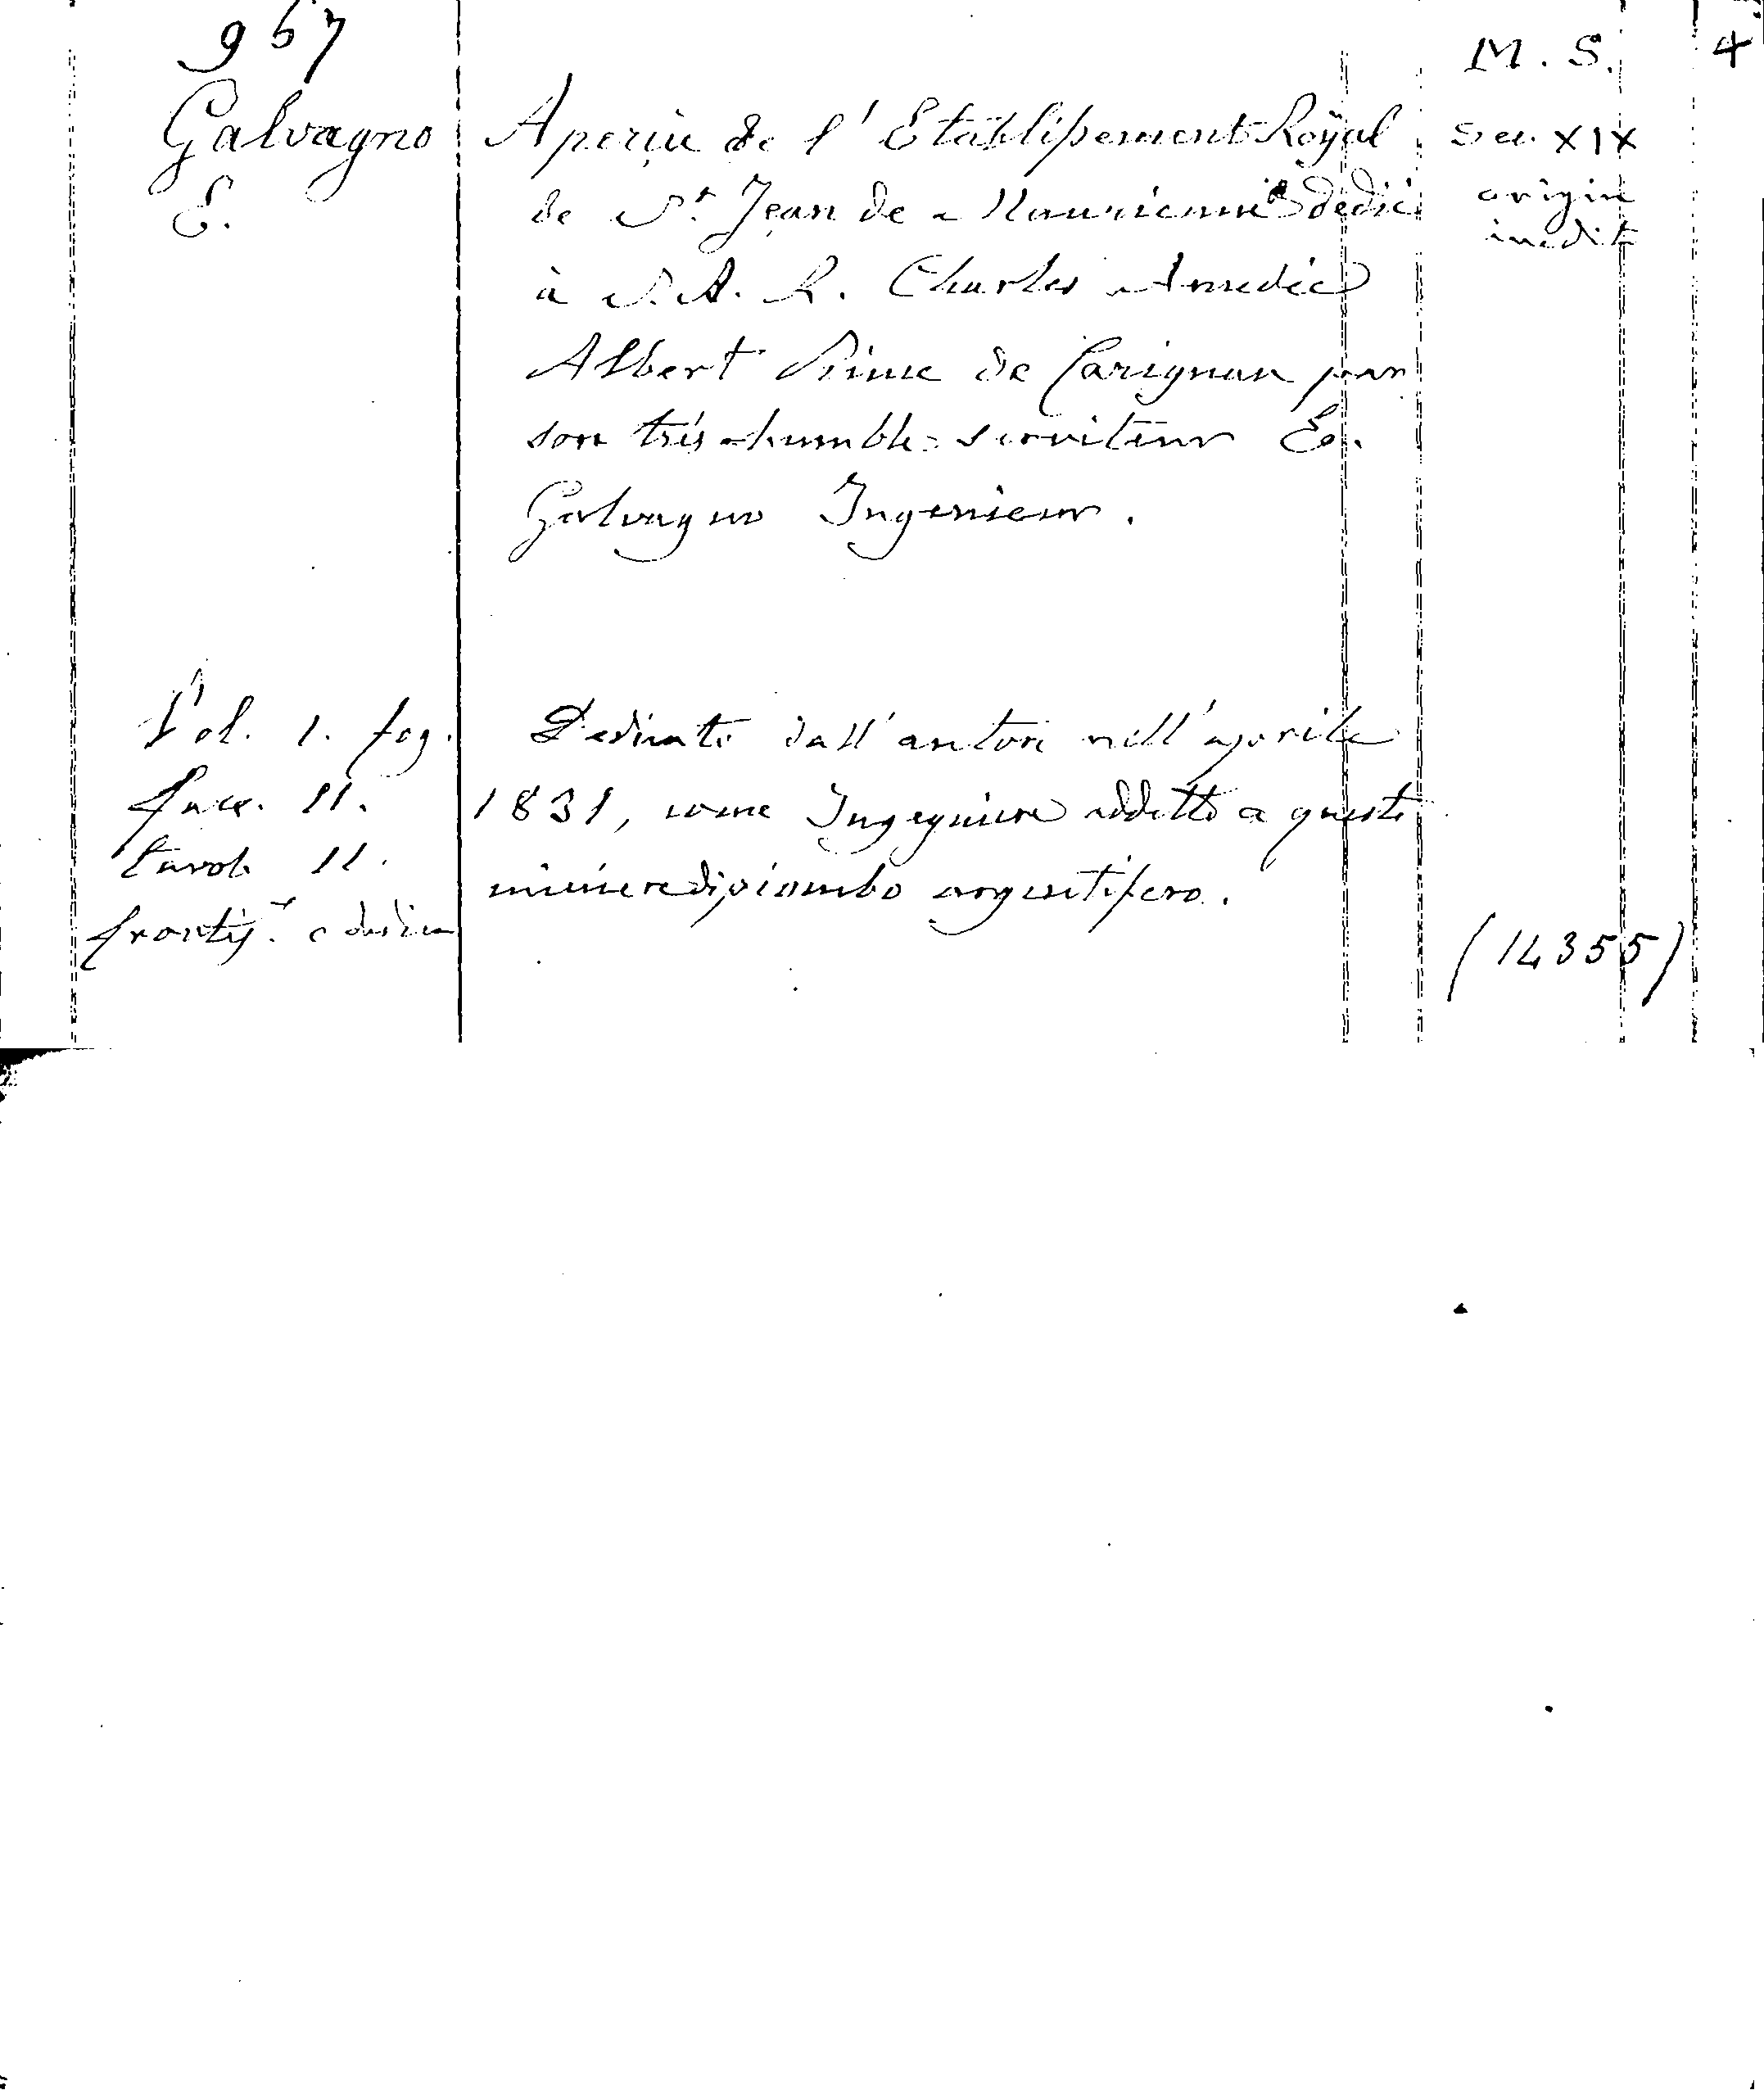 967
M. S. 4
Galvagno
E.
Aperçu de l'Etablissement Royal
de St. Jean de Maurienne dedié
à S. A. R. Charles Amedée
Albert Prince de Carignan par
son trés-humble serviteur E.
Galvagno Ingenieur.
Sec. XIX
origin
inedit
Vol. 1. fog.
facc. 11.
tavole 11.
frontis. e dedica
Dedicato dall'autore nell'aprile
1831, come Ingegniere addetto a queste
miniere di piombo argentifero.
(14355)